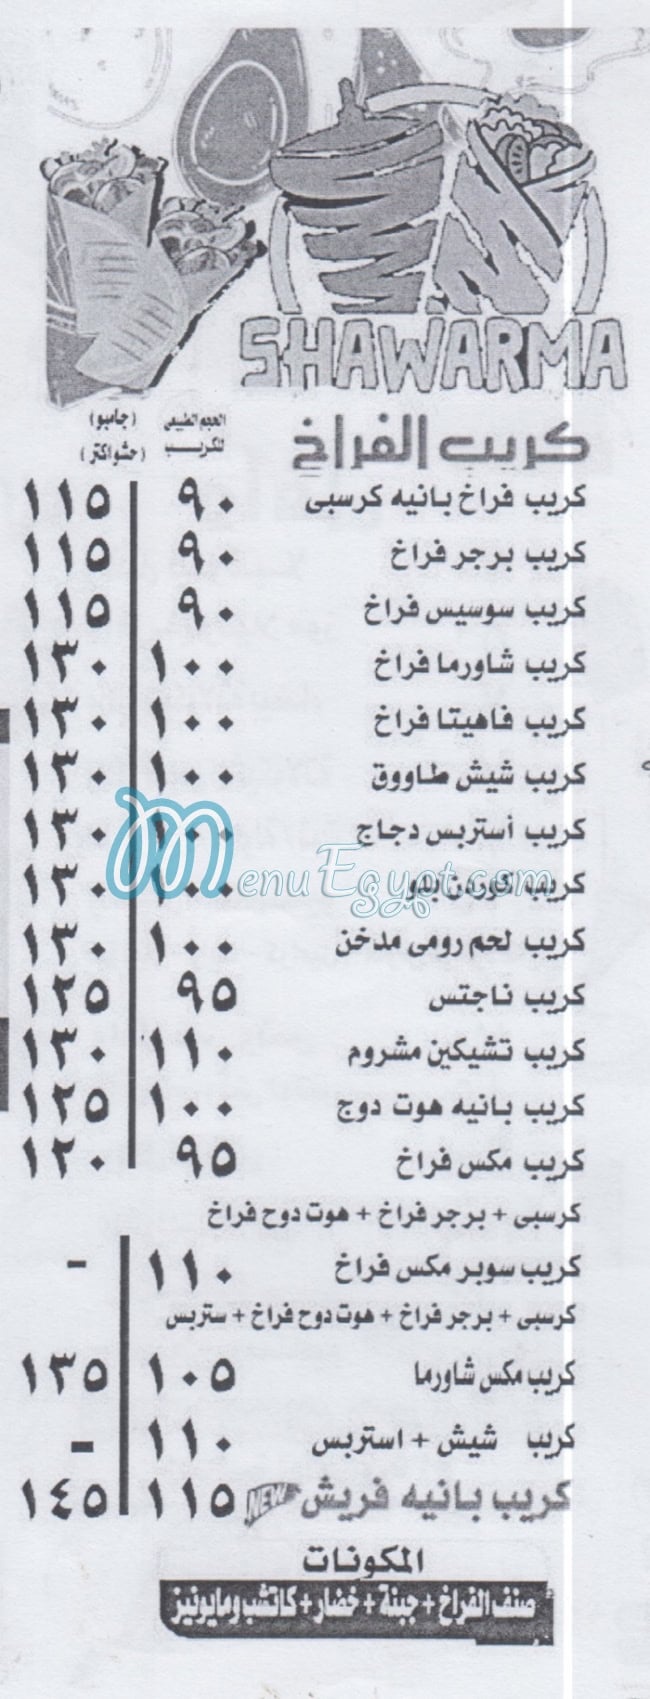 SHAWARMA
كريب الفراخ
الحجم الطبيعى للكريب
(جامبو) (حشو اكثر)
كريب فراخ بانيه كرسبى ٩٠ ١١٥
كريب برجر فراخ ٩٠ ١١٥
كريب سوسيس فراخ ٩٠ ١١٥
كريب شاورما فراخ ١٠٠ ١٣٠
كريب فاهيتا فراخ ١٠٠ ١٣٠
كريب شيش طاووق ١٠٠ ١٣٠
كريب أستربس دجاج ١٠٠ ١٣٠
كريب كوردن بلو ١٠٠ ١٣٠
كريب لحم رومى مدخن ١٠٠ ١٣٠
كريب ناجتس ٩٥ ١٢٥
كريب تشيكين مشروم ١١٠ ١٣٠
كريب بانيه هوت دوج ١٠٠ ١٢٥
كريب مكس فراخ ٩٥ ١٢٠
كرسبى + برجر فراخ + هوت دوح فراخ
كريب سوبر مكس فراخ ١١٠ -
كرسبى + برجر فراخ + هوت دوح فراخ + ستربس
كريب مكس شاورما ١٠٥ ١٣٥
كريب شيش + استربس ١١٠ -
كريب بانيه فريش NEW ١١٥ ١٤٥
المكونات
صنف الفراخ + جبنة + خضار + كاتشب ومايونيز
MenuEgypt.com